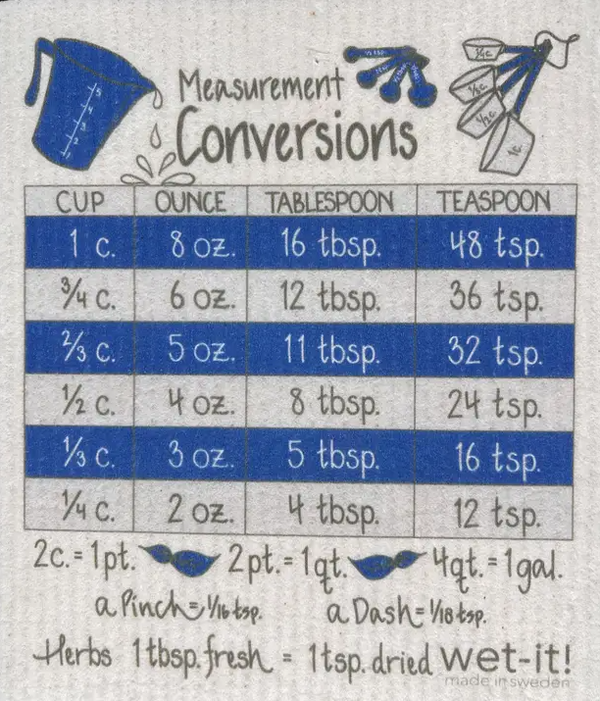 Measurement
Conversions
CUP OUNCE TABLESPOON TEASPOON
1 c. 8 oz. 16 tbsp. 48 tsp.
3/4 c. 6 oz. 12 tbsp. 36 tsp.
2/3 c. 5 oz. 11 tbsp. 32 tsp.
1/2 c. 4 oz. 8 tbsp. 24 tsp.
1/3 c. 3 oz. 5 tbsp. 16 tsp.
1/4 c. 2 oz. 4 tbsp. 12 tsp.
2c. = 1pt. 2pt. = 1qt. 4qt. = 1gal.
a Pinch = 1/16 tsp. a Dash = 1/18 tsp.
Herbs 1 tbsp. fresh = 1 tsp. dried wet-it!
made in sweden
5
4
3
2
1
1/4c
1/3c
1/2c
1c